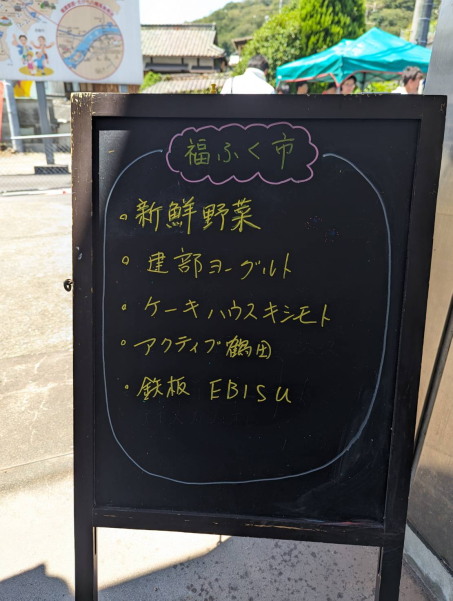 福ふく市
・新鮮野菜
・建部ヨーグルト
・ケーキハウスキシモト
・アクティブ鶴田
・鉄板 EBISU